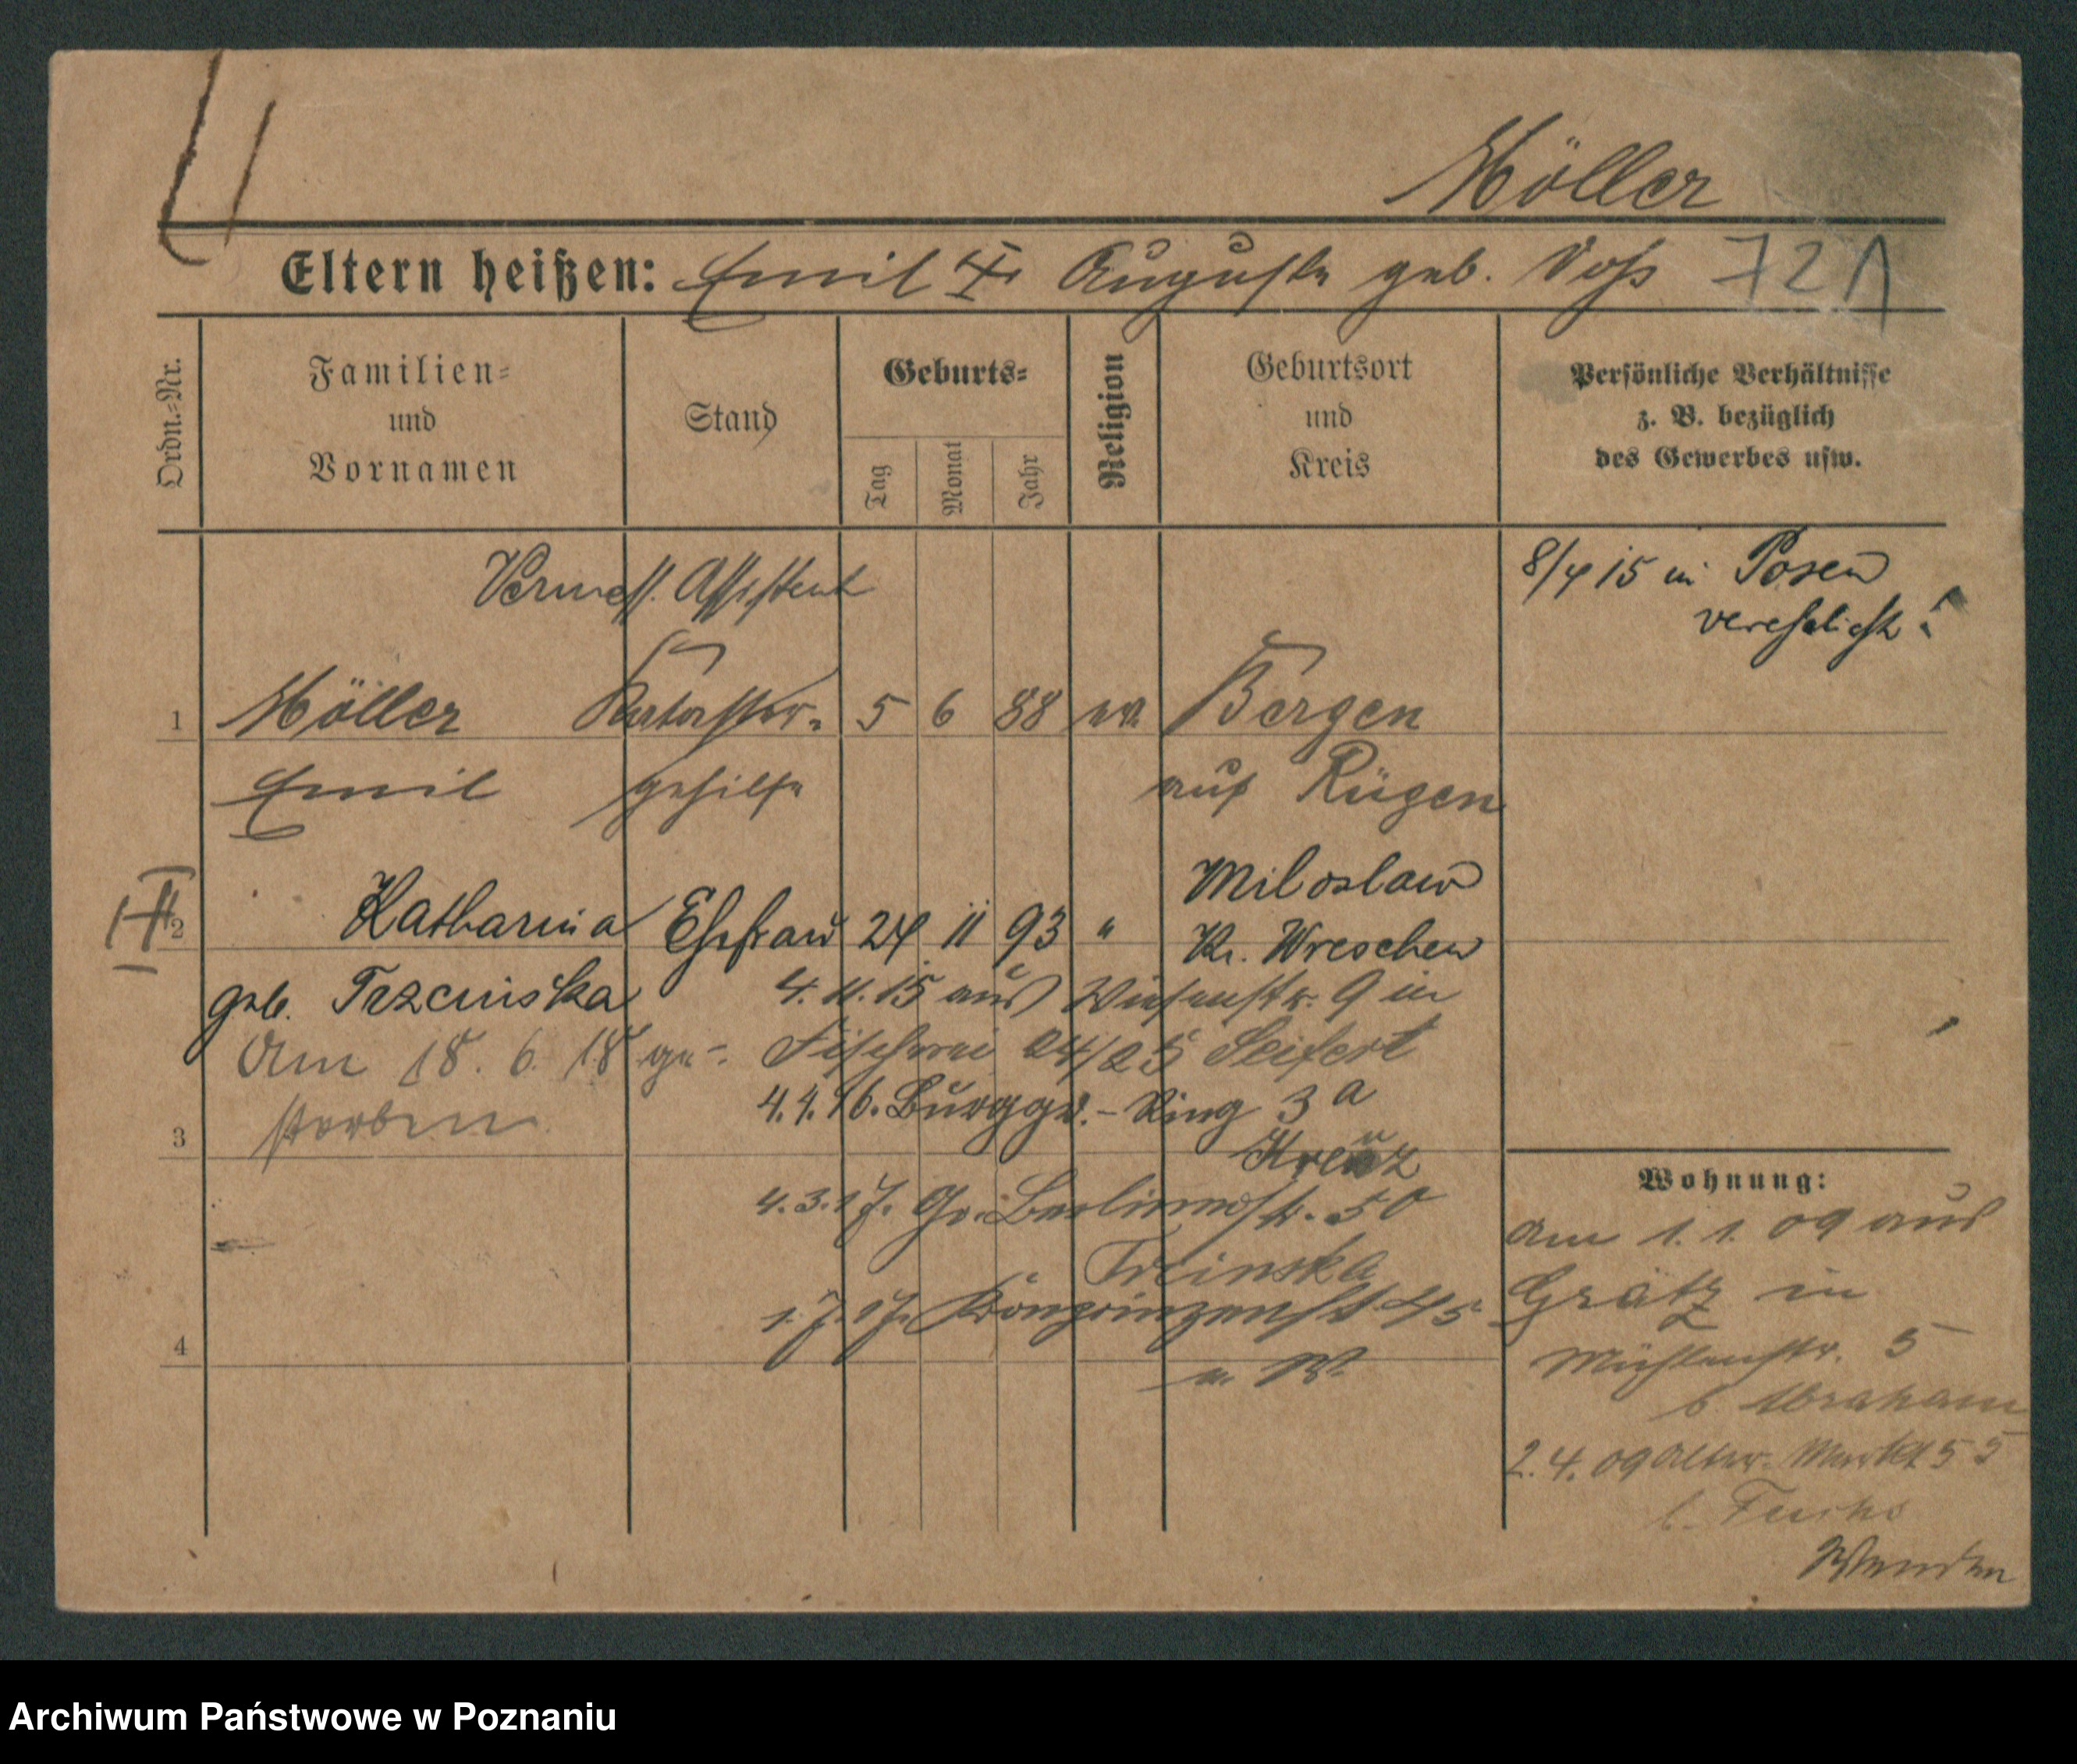 Möller
Eltern heißen: Emil Auguste geb. Voß 721
Ordn.-Nr.
Familien=
und
Vornamen
Stand
Geburts=
Tag
Monat
Jahr
Religion
Geburtsort
und
Kreis
Persönliche Verhältnisse
z. B. bezüglich
des Gewerbes usw.
8/4 15 in Posen
verehelicht
Vermess. Assistent
1 Möller Kataster- 5 6 88 ev. Bergen
Emil gehilfe auf Rügen
Miloslaw
2 Katharina Ehefrau 24 11 93 " Kr. Wreschen
geb. Trzcinska 4. 11. 15 aus Wiesenstr. 9 in
Am 18. 6. 18 ge- Fischerei 24/25 Seifert
storben 4. 4. 16. Burggr.-Ring 3a
3 Kreuz
4. 3. 17. Gr. Berlinerstr. 50
Trcinska
1. 7. 17. Kronprinzenst. 45
4
u. W.
Wohnung:
am 1. 1. 09 aus
Grätz in
Mühlenstr. 5
b Abraham
2. 4. 09 Alter Markt 55
b. Fuchs
Wenden
Archiwum Państwowe w Poznaniu